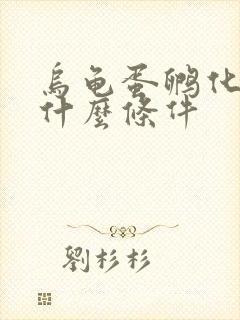 烏龟蛋孵化
什麼條件
劉杉杉